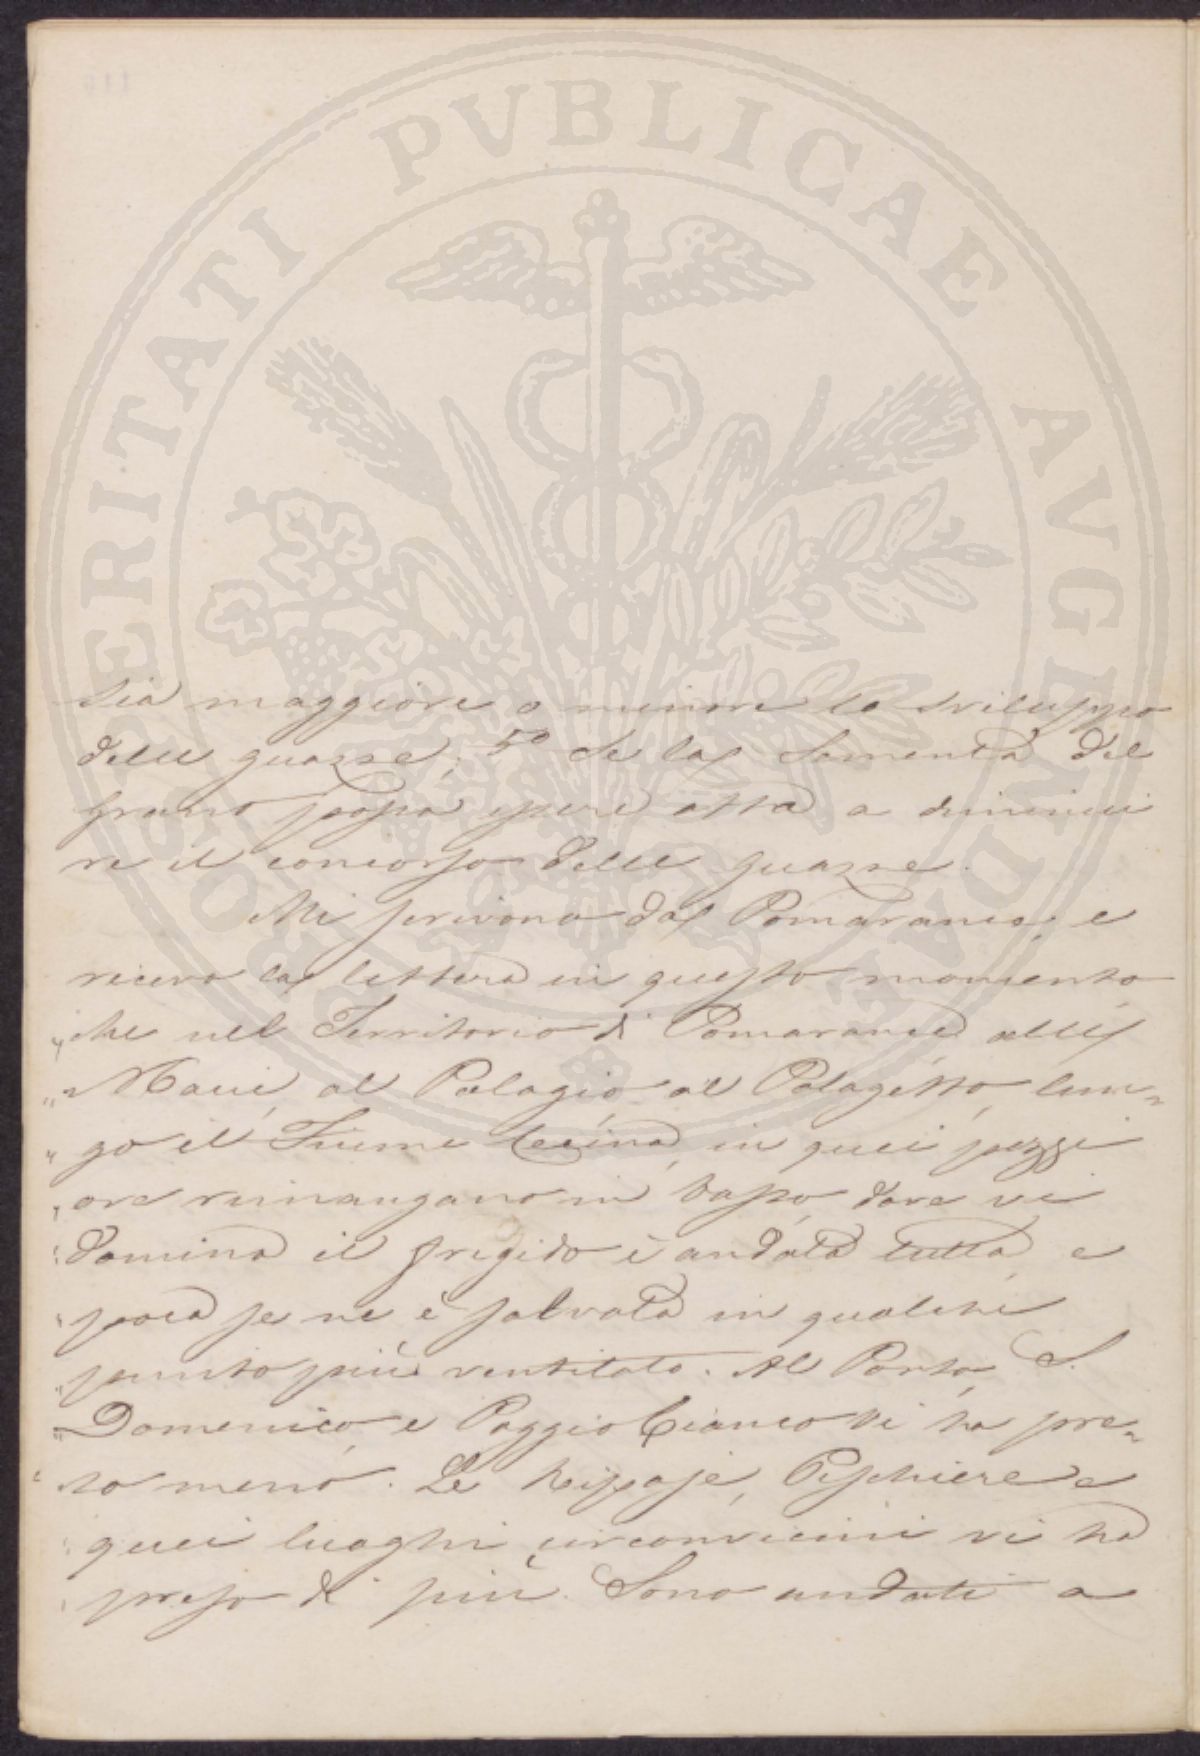 PROSPERITATI PVBLICAE AVGENDAE
sia maggiore o minore lo sviluppo
delle guazze; 5º Se la Sementa del
grano possa essere atta a diminui
re il concorso delle guazze.
Mi scrivono dal Pomarance, e
ricevo la lettera in questo momento
„ che nel Territorio di Pomarance alle
„ al Palagio al Palagetto, lun-
„ go il Fiume Cecina, in quei pezzi
„ ove rimangano in basso dove vi
„ domina il frigido è andata tutta, e
„ poca se ne è salvata in qualche
„ punto più ventilato. Al Porto, S.
„ Domenico e Poggio Bianco vi ha pre-
„ so meno. Le Peschiere e
„ quei luoghi circonvicini vi ha
„ preso di più. Sono andati a